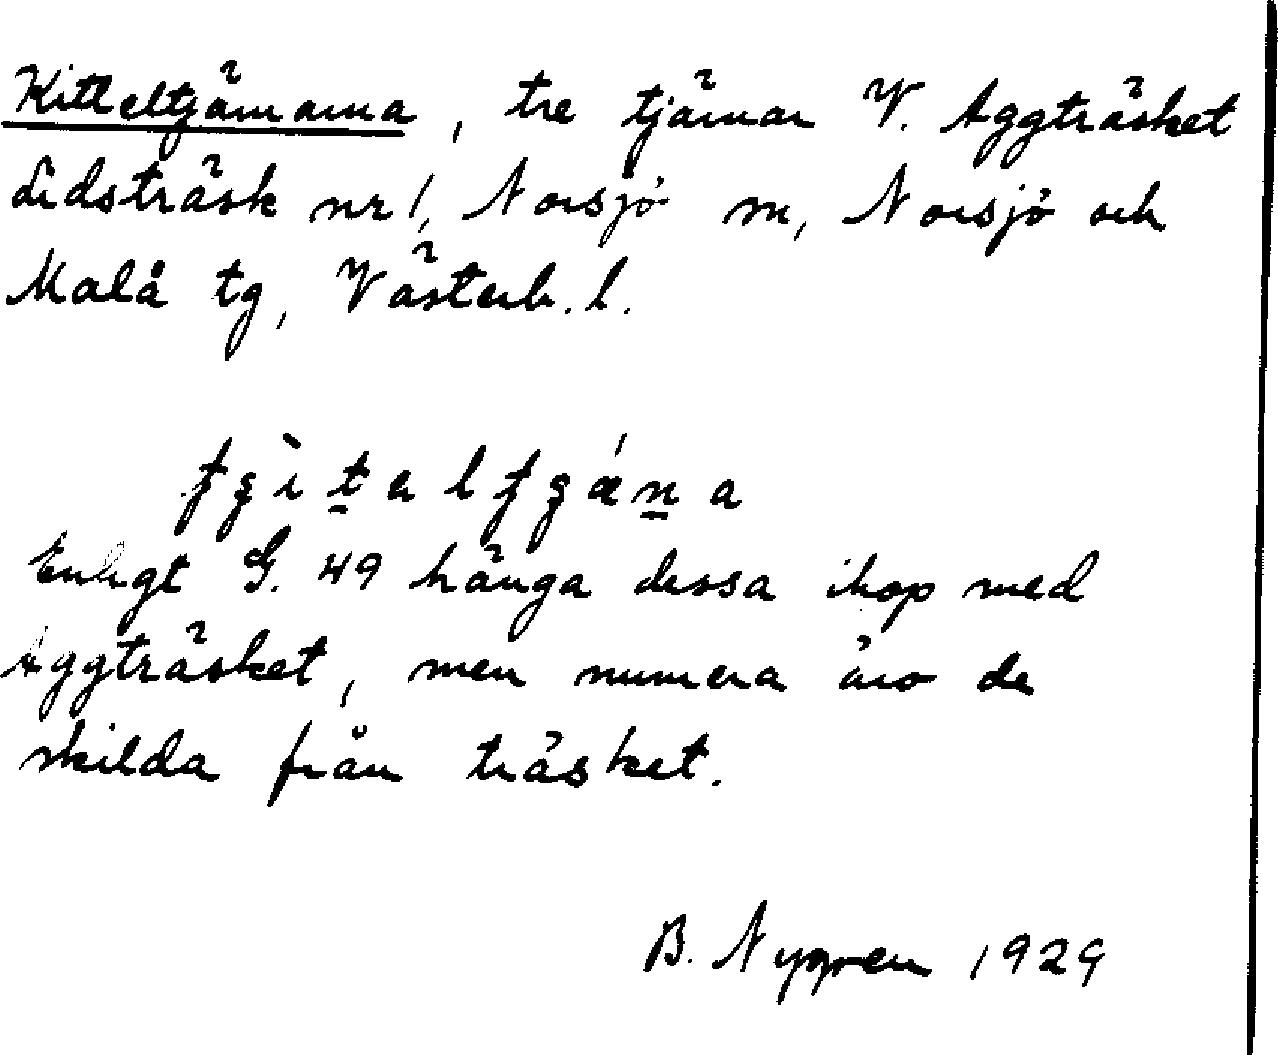 Kitteltjärnarna, tre tjärnar V. Aggträsket
Lidsträsk nr 1, Norsjö sn, Norsjö och
Malå tg, Västerb. l.
Enligt G. 49 hänga dessa ihop med
Aggträsket, men numera äro de
skilda från träsket.
B. Nygren 1929